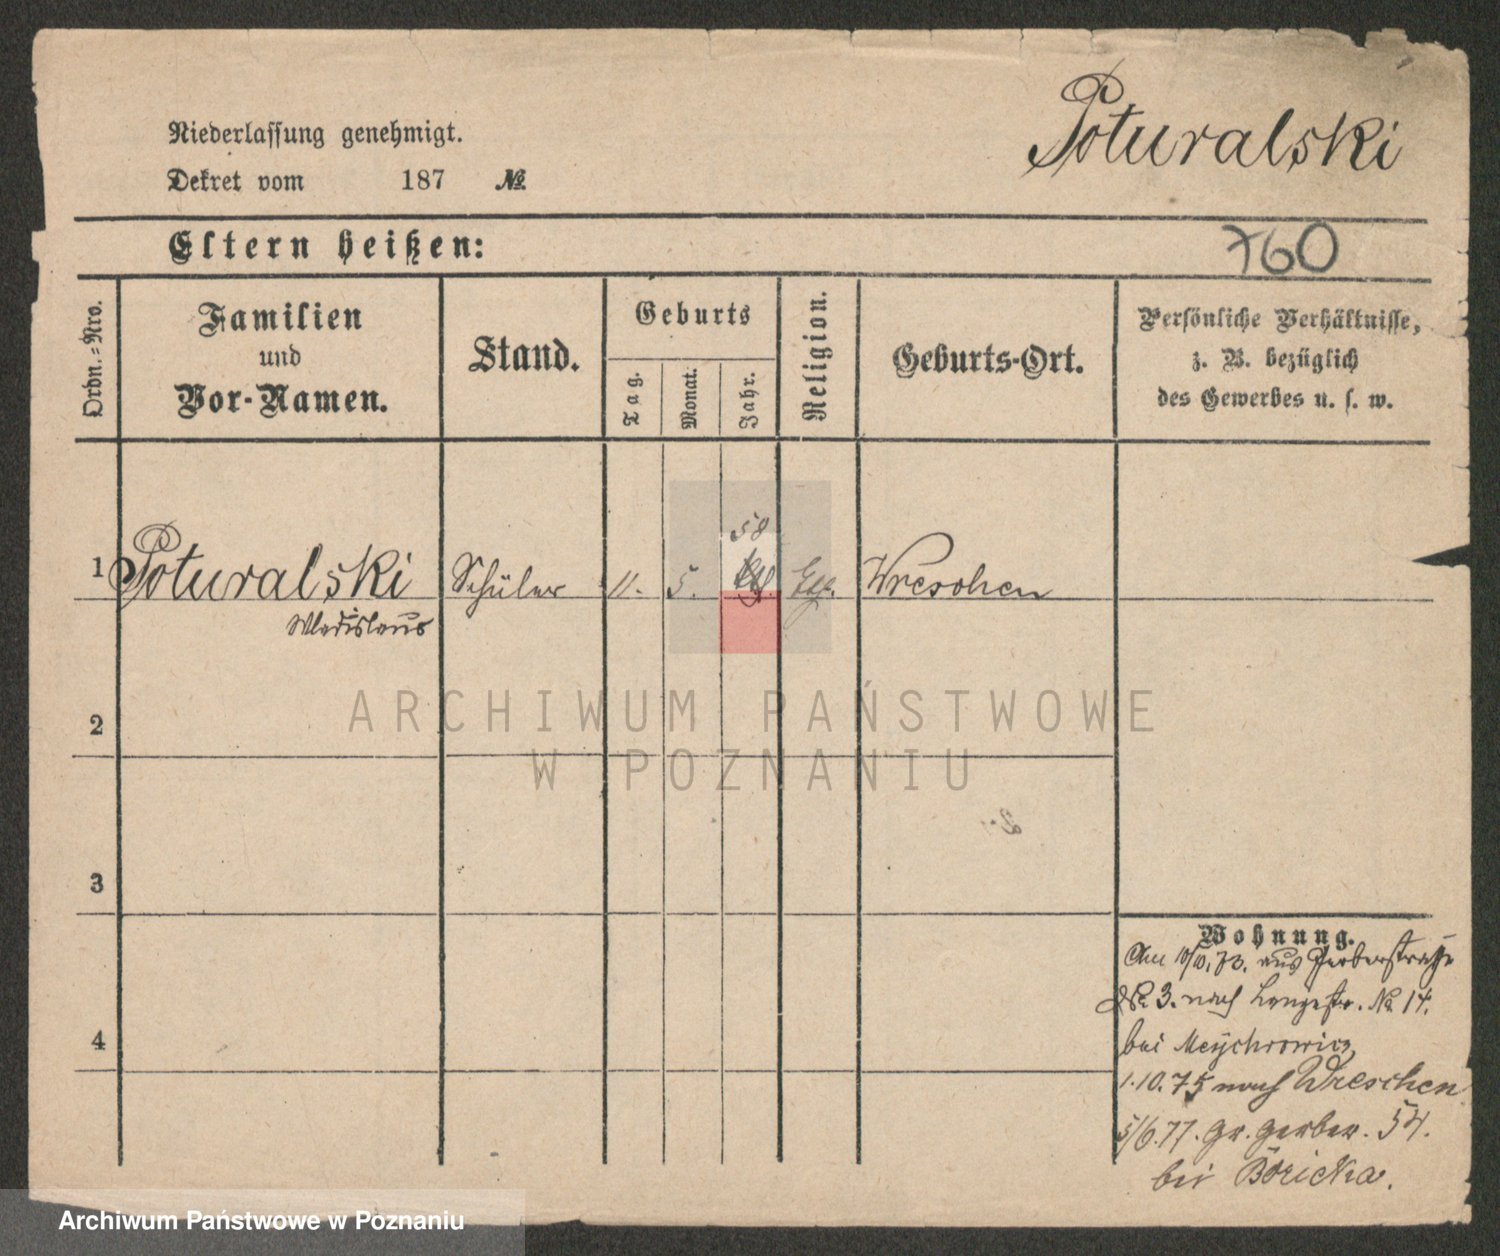 Poturalski
Niederlassung genehmigt.
Dekret vom 187 №
Eltern heißen:
760
Ordn.-Nro.
Familien
und
Vor-Namen.
Stand.
Geburts
Tag.
Monat.
Jahr.
Religion.
Geburts-Ort.
Persönliche Verhältnisse,
z. B. bezüglich
des Gewerbes u. s. w.
58
1 Poturalski Schüler 11. 5. Wreschen
Wladislaus
ARCHIWUM PAŃSTWOWE
W POZNANIU
2
3
4
Wohnung.
Am 10/10. 73. aus Gerberstraße
No. 3. nach Langestr. No 14.
bei
1.10.75 nach Wreschen
5/6.77. Gr. Gerber. 54.
bei
Archiwum Państwowe w Poznaniu